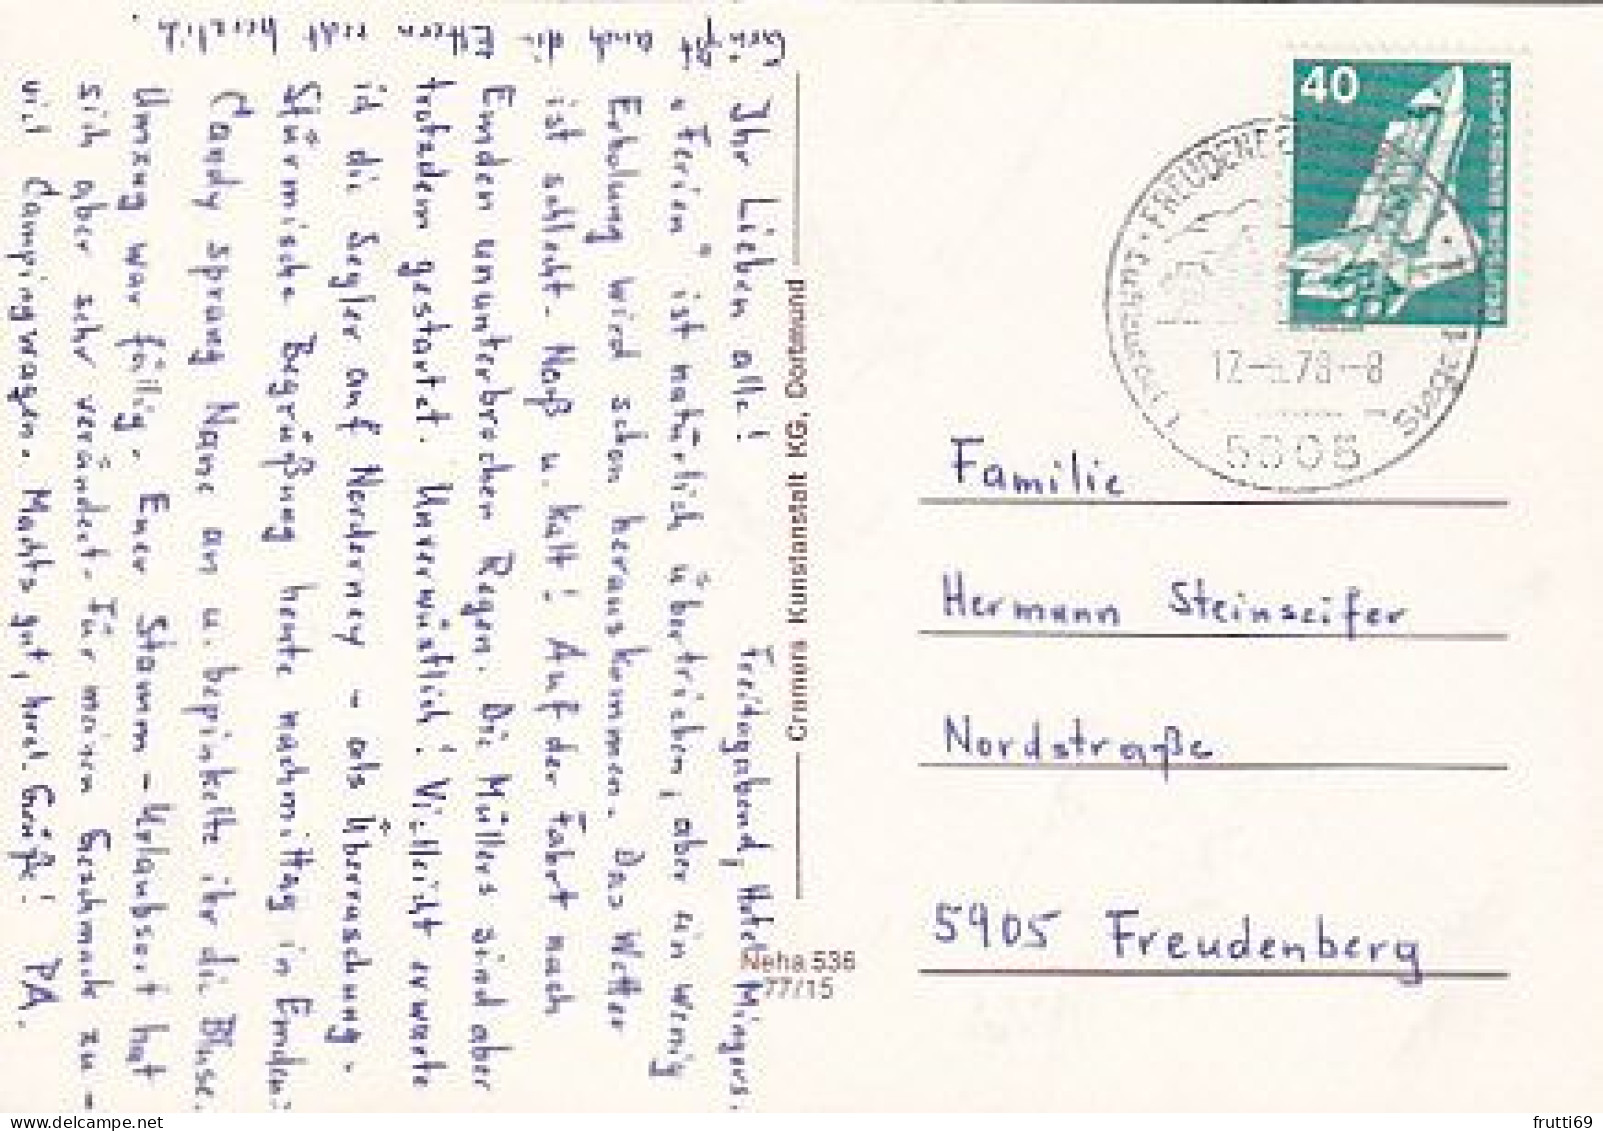 Freitagabend, Hotel Mingers.
Ihr Lieben alle!
„Ferien" ist natürlich übertrieben, aber ein wenig
Erholung wird schon herauskommen. Das Wetter
ist schlecht. Naß u. kalt! Auf der Fahrt nach
Emden ununterbrochen Regen. Die Müllers sind aber
trotzdem gestartet. Unverwüstlich! Vielleicht erwarte
ich die Segler auf Norderney - als Überraschung.
Stürmische Begrüßung heute nachmittag in Emden:
Candy sprang Nane an u. bepinkelte ihr die Bluse.
Umzug war fällig. Euer Stamm-Urlaubsort hat
sich aber sehr verändert. Für meinen Geschmack zu-
viel Campingwagen. Machts gut, herzl. Grüße! PA.
Grüßt auch die Eltern recht herzlich.
Cramers Kunstanstalt KG, Dortmund
Neha 536
77/15
40
DEUTSCHE BUNDESPOST
Luftkurort · FREUDENBERG
12.-5.78.-8
5905
Familie
Hermann Steinseifer
Nordstraße
5905 Freudenberg
frutti69